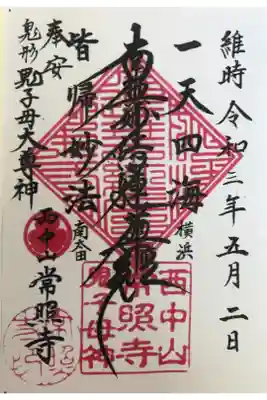 維時令和三年五月二日
一天四海
横浜
南無妙法蓮華経
皆帰妙法
南太田
奉安
鬼形鬼子母大尊神
西中山常照寺
西中山
常照寺
鬼子母神